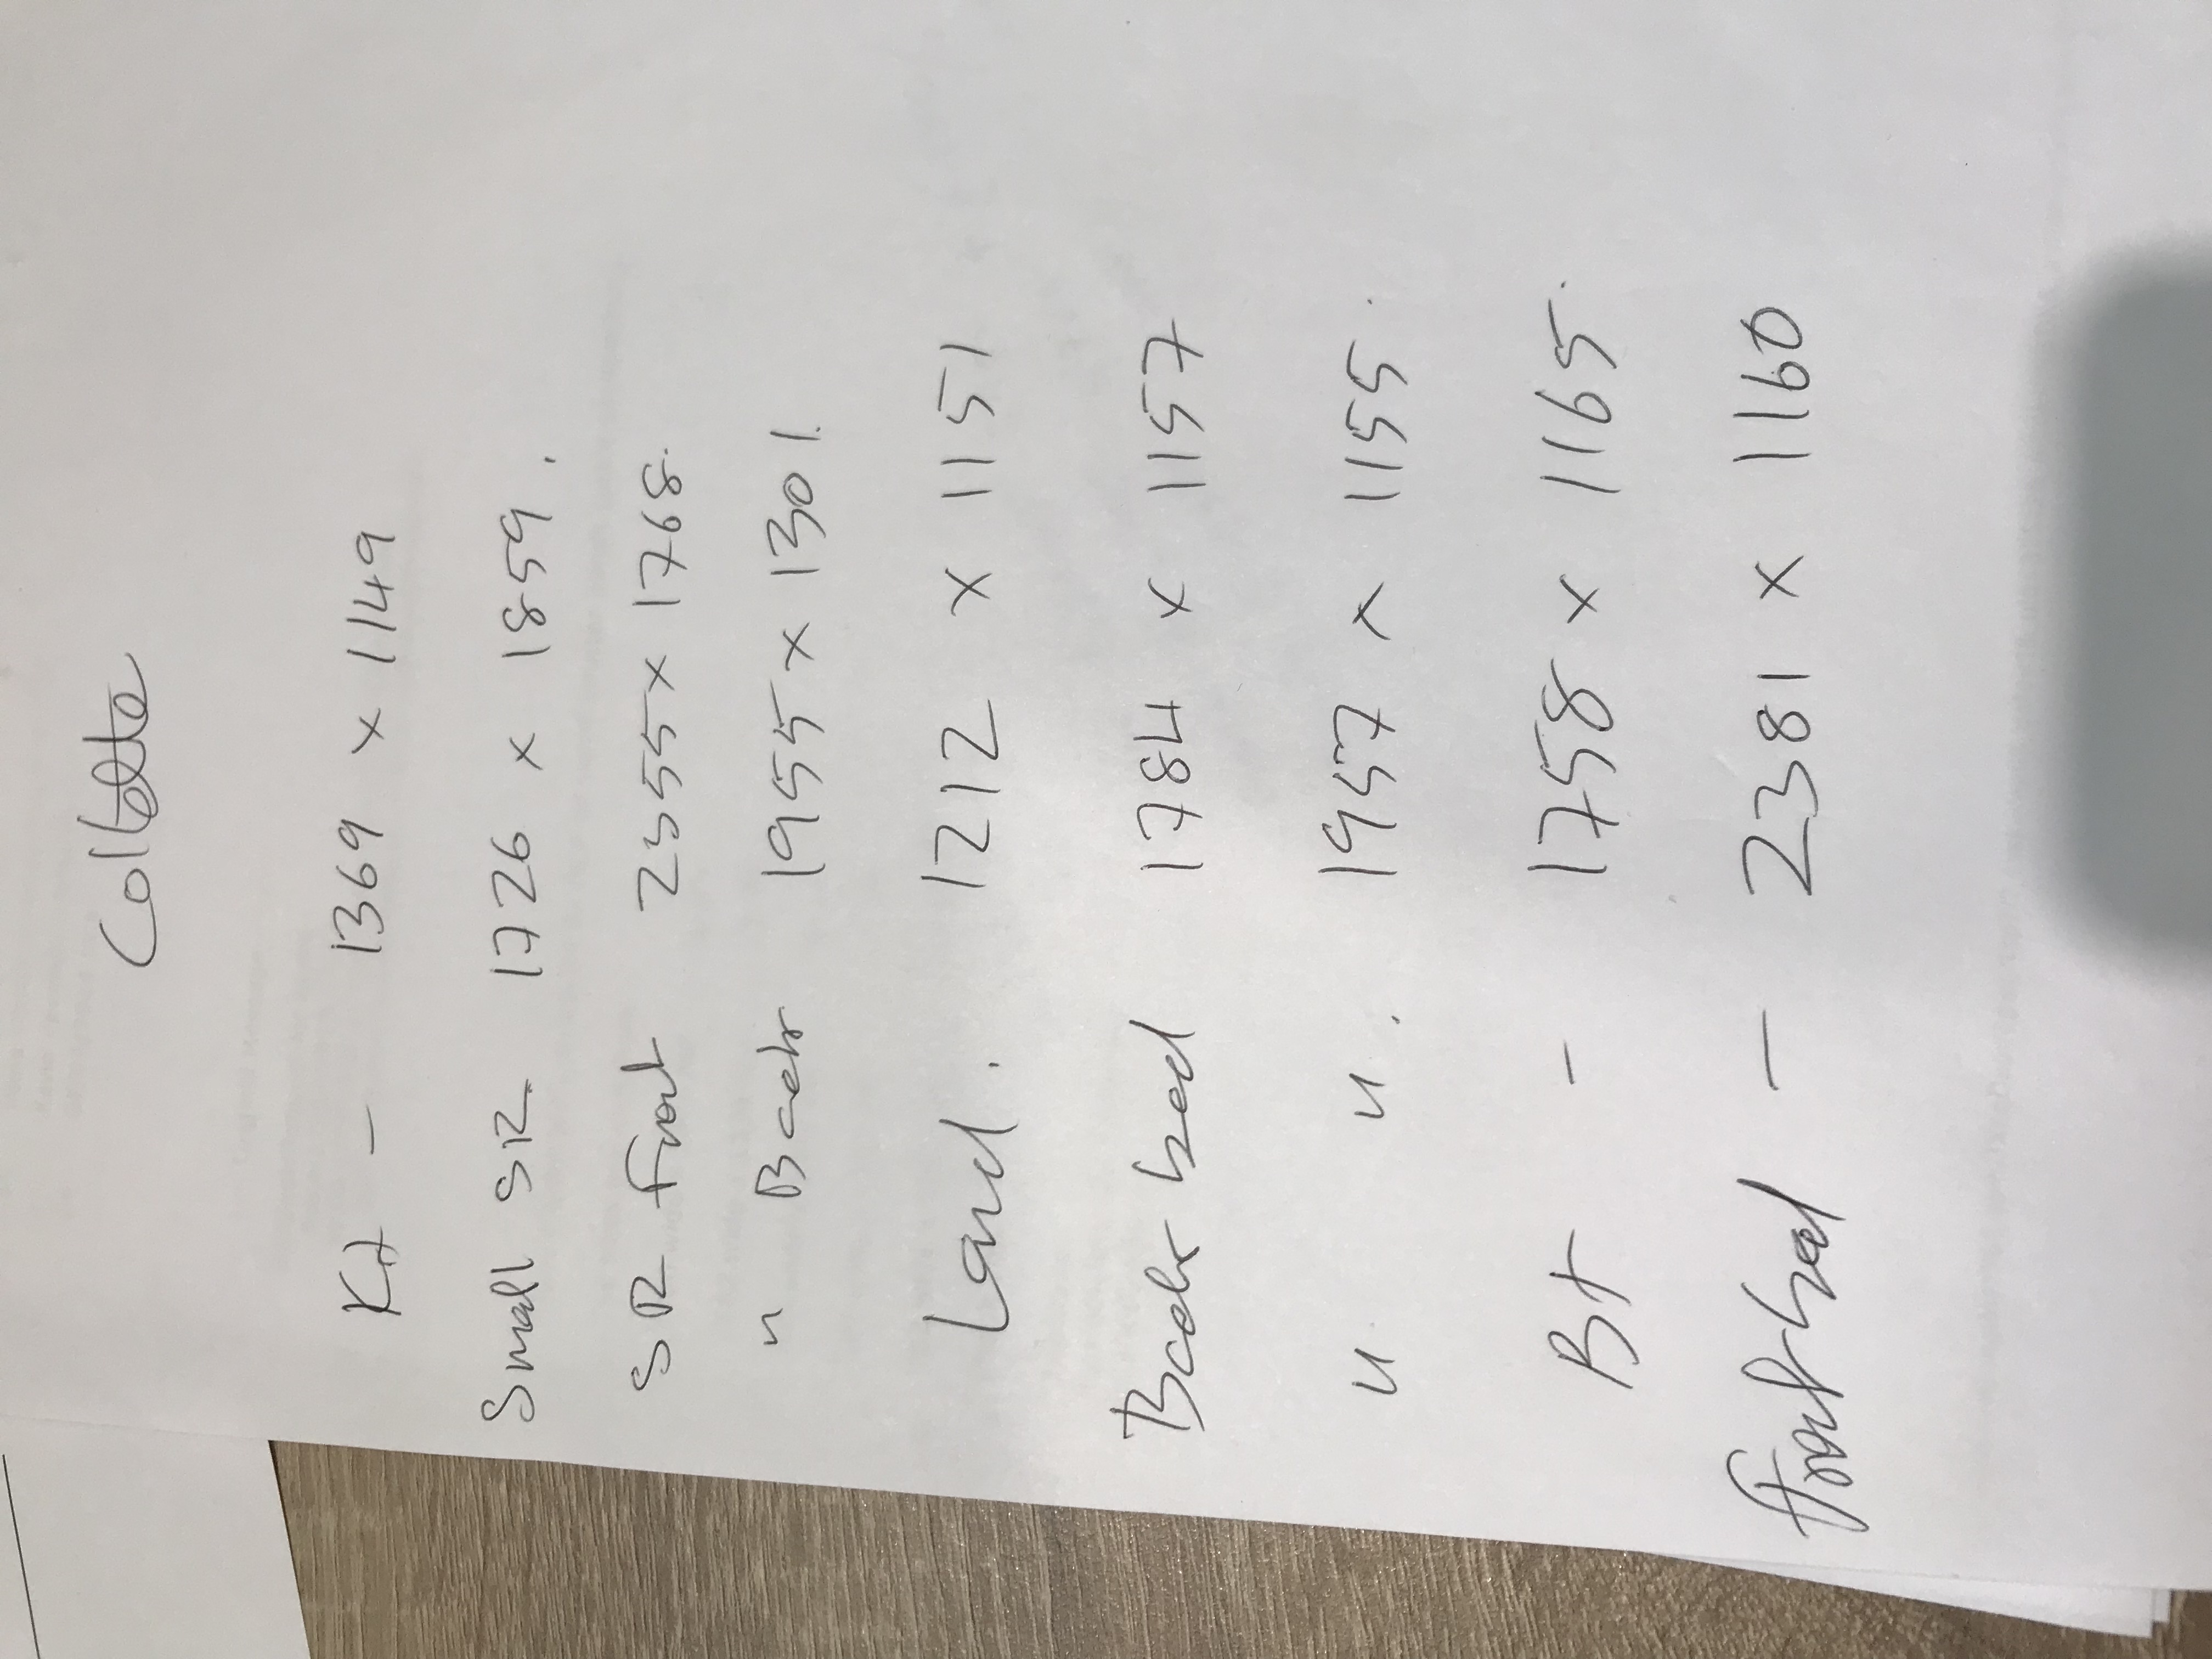 Collette
Kt - 1369 x 1149
Small SR 1726 x 1859.
SR front 2355 x 1768.
" Back 1955 x 1301.
Land. 1212 x 1151
Back bed 1784 x 1157
" " . 1957 x 1155.
Bt - 1758 x 1165.
front bed - 2381 x 1160